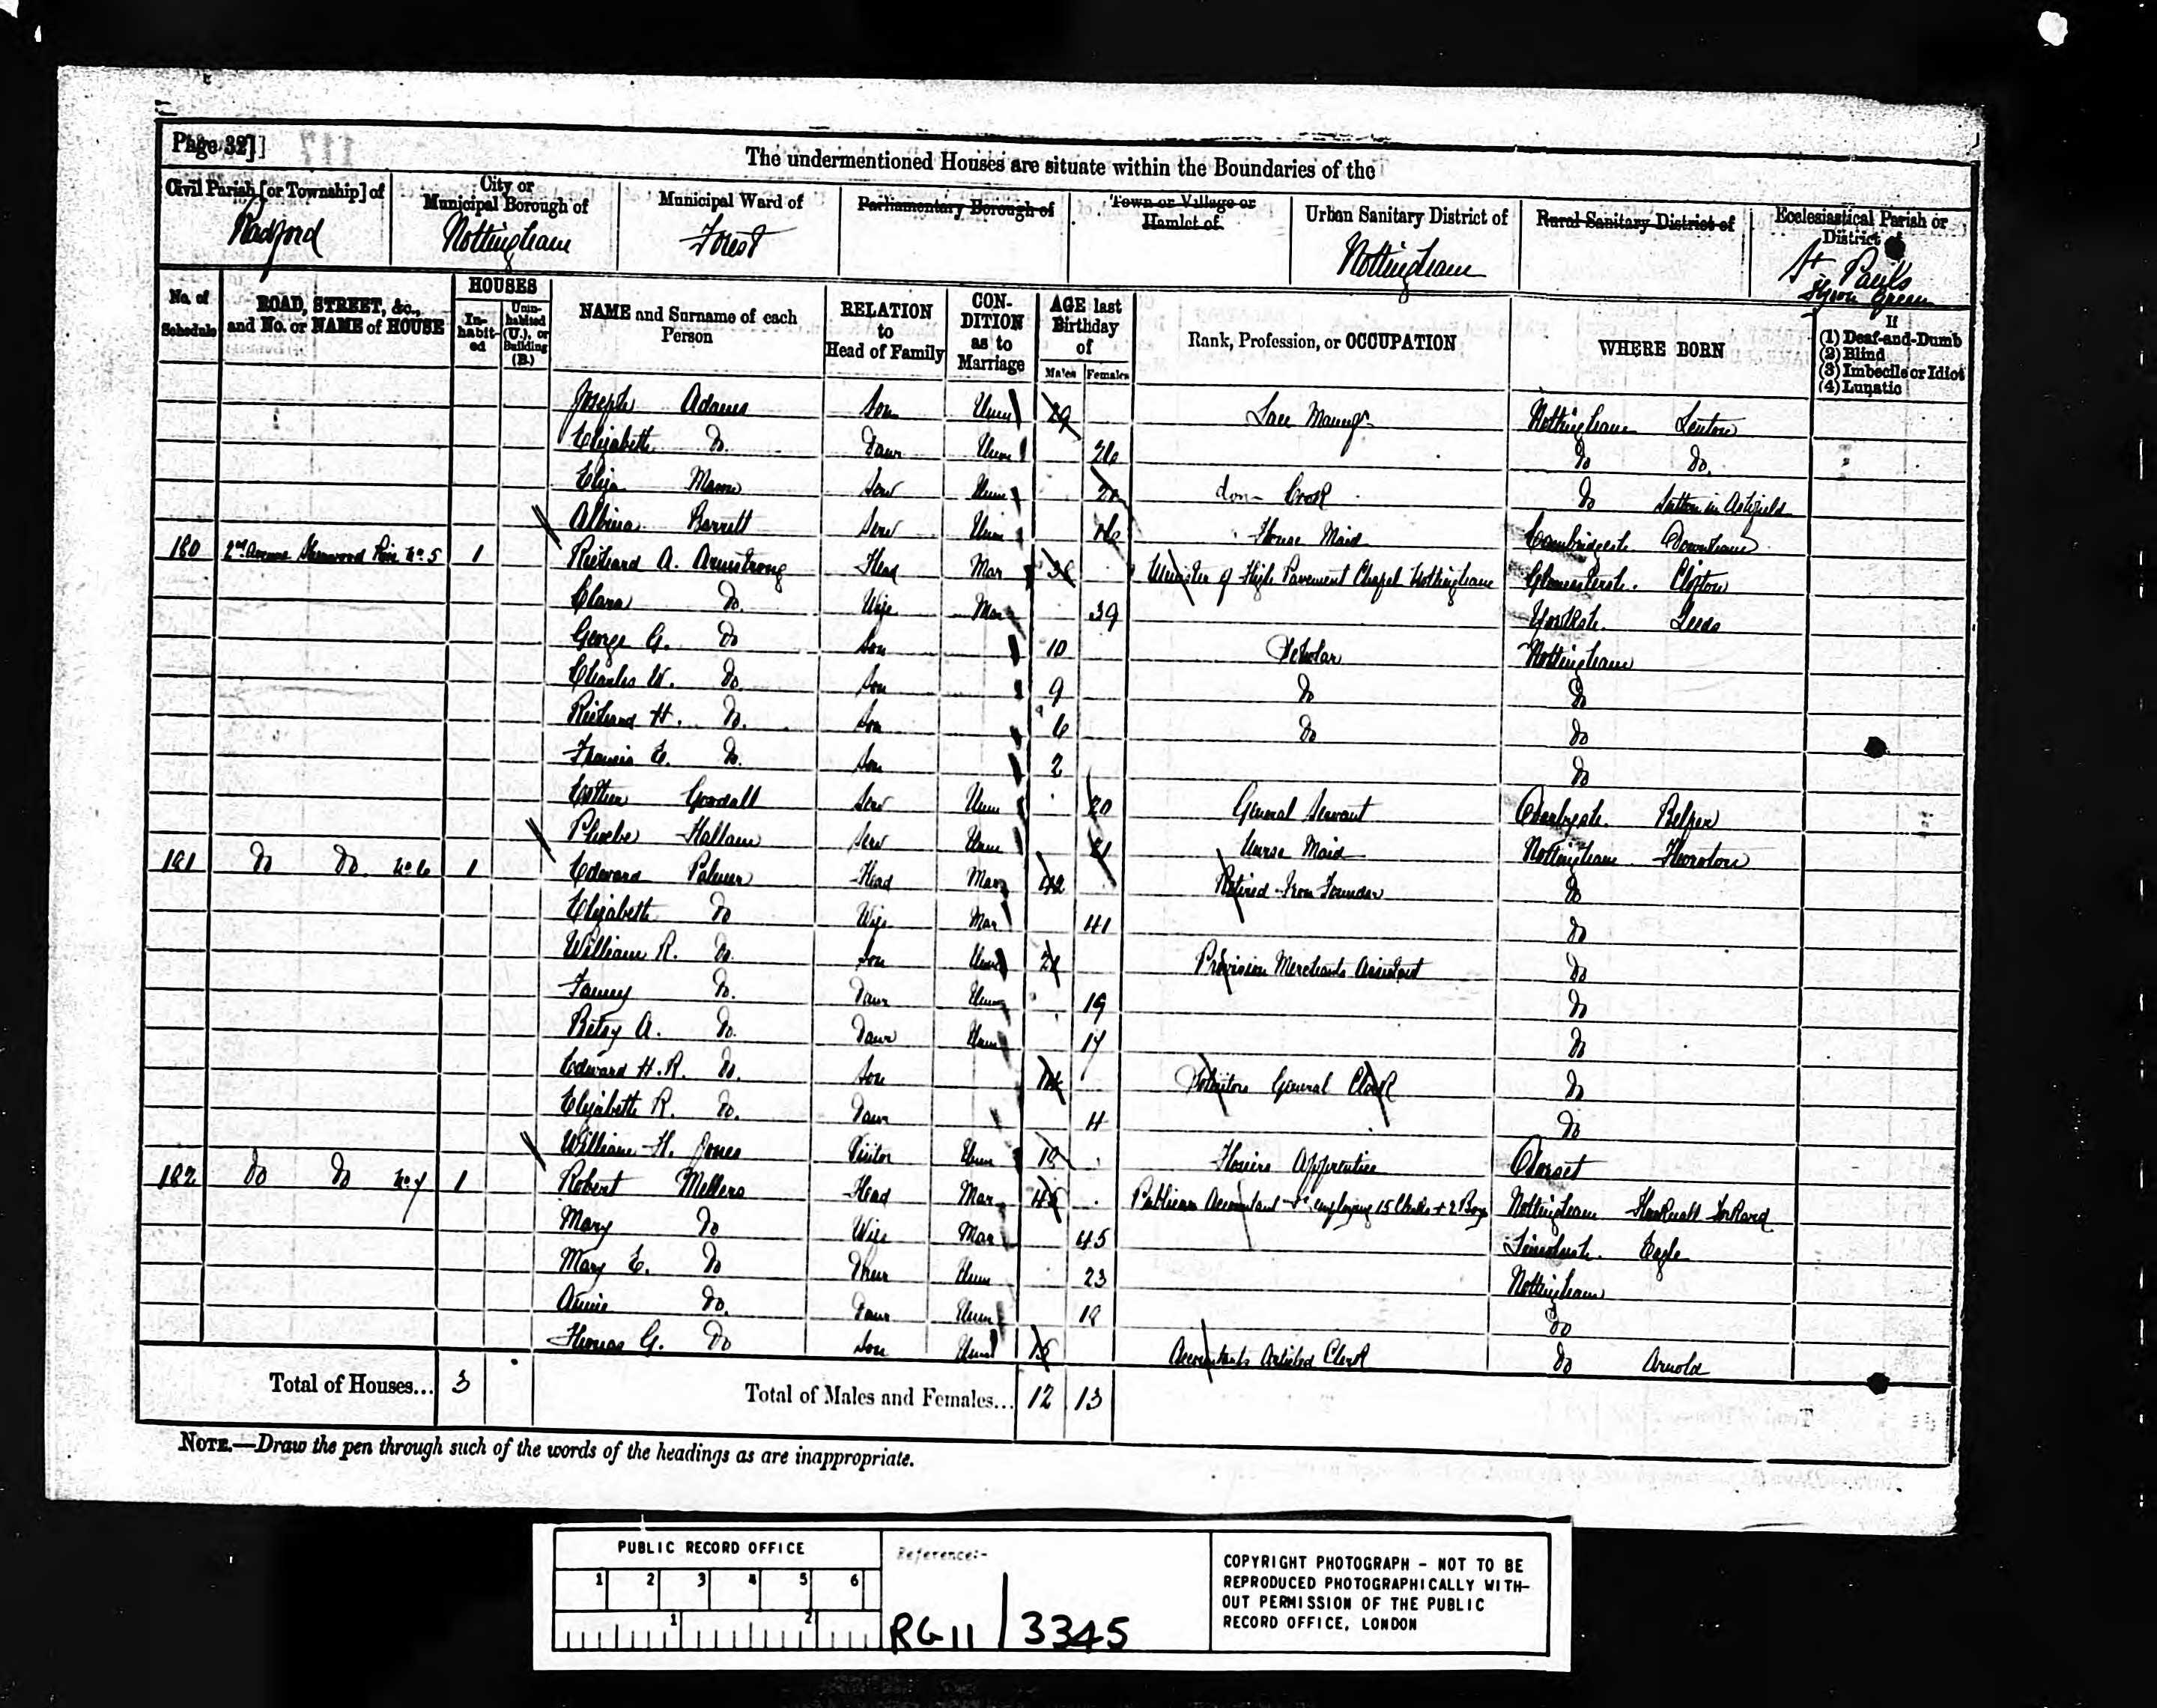 Page 32]
The undermentioned Houses are situate within the Boundaries of the
Civil Parish [or Township] of
Radford
City or Municipal Borough of
Nottingham
Municipal Ward of
Forest
Parliamentary Borough of
Town or Village or Hamlet of
Urban Sanitary District of
Nottingham
Rural Sanitary District of
Ecclesiastical Parish or District of
St Pauls
Hyson Green
No. of Schedule
ROAD, STREET, &c., and No. or NAME of HOUSE
HOUSES
In-habit-ed
Unin-habited (U.), or Building (B.)
NAME and Surname of each Person
RELATION to Head of Family
CON-DITION as to Marriage
AGE last Birthday of
Males Females
Rank, Profession, or OCCUPATION
WHERE BORN
If
(1) Deaf-and-Dumb
(2) Blind
(3) Imbecile or Idiot
(4) Lunatic
Joseph Adams Son Unm 29 Lace Manufr Nottingham Lenton
Elizabeth Do. Daur Unm 26 Do Do.
Eliza Serv Unm dom Cook Do Sutton in Ashfield
Albina Barrett Serv Unm 16 House Maid Cambridgesh. Downham
180 2nd Avenue Sherwood Rise No 5 1 Richard A. Armstrong Head Mar 38 Minister of High Pavement Chapel Nottingham Gloucestersh. Clifton
Clara Do. Wife Mar 39 Yorksh. Leeds
George G. Do Son 10 Scholar Nottingham
Charles W. Do. Son 9 Do Do
Richard H. Do. Son 6 Do Do
Francis E. Do. Son 2 Do
Esther Goodall Serv Unm 20 General Servant Derbysh. Belper
Phoebe Hallam Serv Unm 21 Nurse Maid Nottingham
181 Do Do. No 6 1 Edward Palmer Head Mar 42 Retired Iron Founder Do
Elizabeth Do Wife Mar 41 Do
William R. Do. Son Unm 21 Provision Merchants Assistant Do
Fanny Do. Daur Unm 19 Do
Betsy A. Do. Daur Unm 17 Do
Edward H. R. Do. Son 14 Solicitors General Clerk Do
Elizabeth R. Do. Daur 4 Do
William H. Jones Visitor Unm 19 Hosiers Apprentice Dorset
182 Do Do No 7 1 Robert Mellers Head Mar 45 Accountant employing 15 Clerks + 2 Boys Nottingham Hucknall Torkard
Mary Do Wife Mar 45 Lincolnsh. Eagle
Mary E. Do Daur Unm 23 Nottingham
Annie Do. Daur Unm 18 Do
Thomas G. Do Son Unm 15 Accountants Articled Clerk Do Arnold
Total of Houses... 3
Total of Males and Females... 12 13
NOTE.—Draw the pen through such of the words of the headings as are inappropriate.
PUBLIC RECORD OFFICE
1 2 3 4 5 6
1 2
Reference:-
RG 11 / 3345
COPYRIGHT PHOTOGRAPH - NOT TO BE
REPRODUCED PHOTOGRAPHICALLY WITH-
OUT PERMISSION OF THE PUBLIC
RECORD OFFICE, LONDON